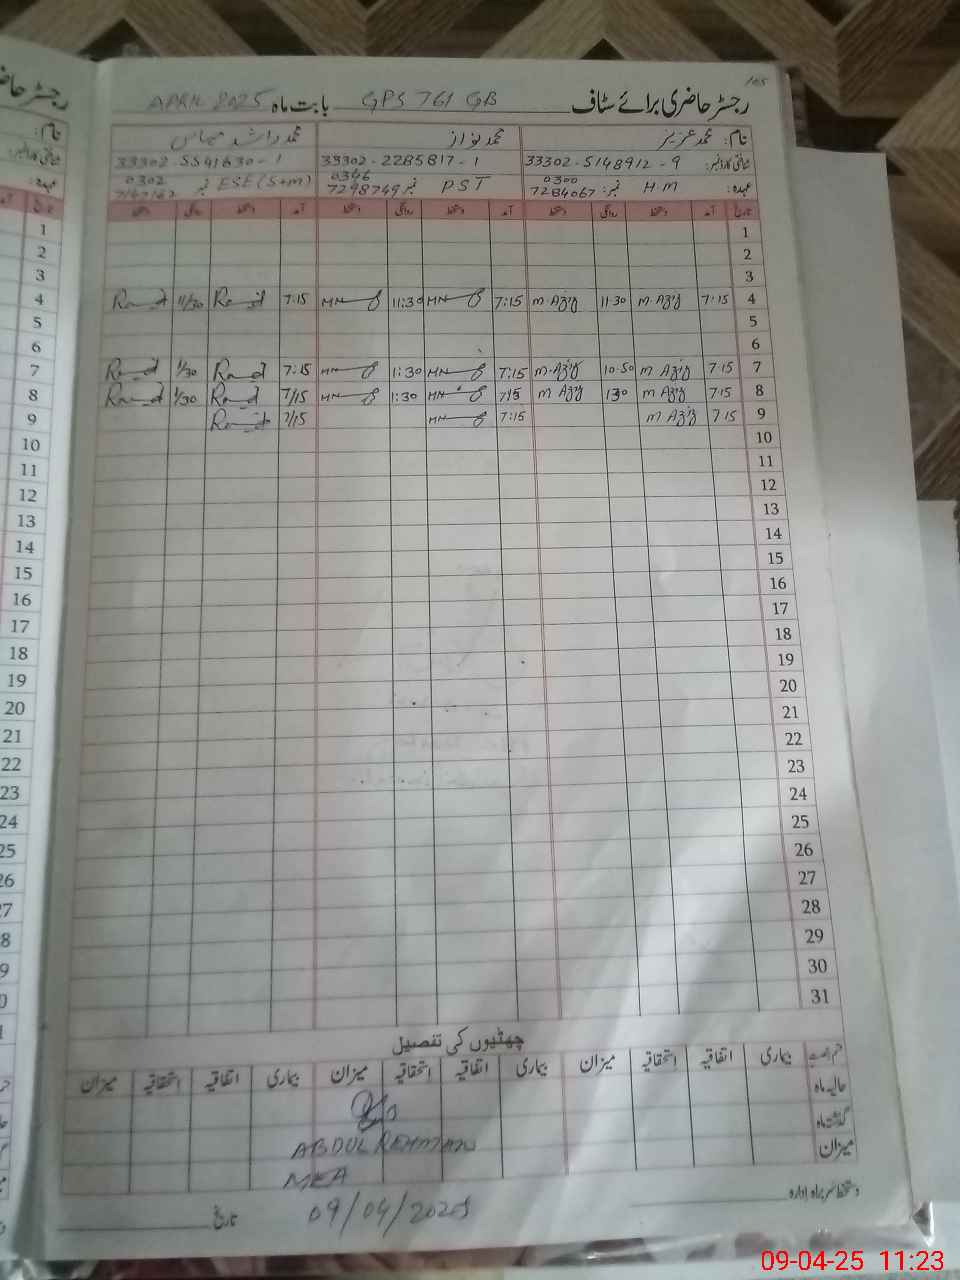 105
رجسٹر حاضری برائے سٹاف GPS 761 GB بابت ماہ APRIL 2025
نام: محمد عزیز محمد نواز محمد راشد
شناختی کارڈ نمبر: 33302-5148912-9 33302-2285817-1 33302-5541630-1
عہدہ: H.M نمبر: 0300 7284067 PST نمبر 0346 7298749 ESE (S+m) نمبر 0302
تاریخ آمد دستخط روانگی دستخط آمد دستخط روانگی دستخط آمد دستخط روانگی دستخط
1
2
3
4 7:15 M.Aziz 11:30 M.Aziz 7:15 11:30 7:15 11/30
5
6
7 7:15 M Aziz 10:50 M.Aziz 7:15 1:30 7:15 1/30
8 7:15 M Aziz 130 M Aziz 715 1:30 7/15 1/30
9 7:15 M Aziz 7:15 7/15
10
11
12
13
14
15
16
17
18
19
20
21
22
23
24
25
26
27
28
29
30
31
چھٹیوں کی تفصیل
قسم رخصت بیماری اتفاقیہ استحقاقیہ میزان بیماری اتفاقیہ استحقاقیہ میزان بیماری اتفاقیہ استحقاقیہ میزان
حالیہ ماہ
گذشتہ ماہ
میزان
ABDUL REHMAN
MEA
دستخط سربراہ ادارہ
تاریخ 09/04/2025
09-04-25 11:23